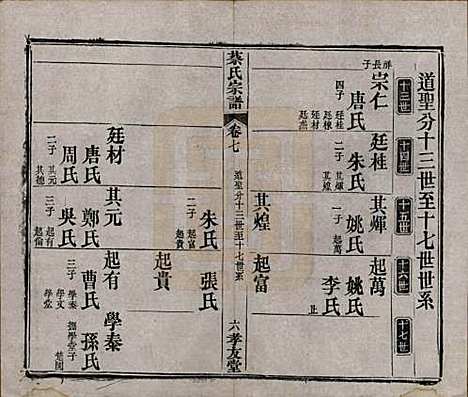 道聖分十三世至十七世世系
十三世
十四世
十五世
十六世
十七世
胖長子
宗仁
唐氏
四子
廷桂
廷棟
廷材
廷燕
廷桂
朱氏
二子
其輝
其煌
其輝
姚氏
一子
起萬
起萬
姚氏
李氏
止
其煌
朱氏
二子
起富
起貴
起富
張氏
起貴
蔡氏宗譜
卷七
道聖分十三世至十七世世系
六
孝友堂
廷材
唐氏
周氏
二子
其元
其德
其元
鄭氏
吳氏
三子
起有
起倫
起有
曹氏
三子
學泰
學文
學堂
學泰
孫氏
撫學堂子